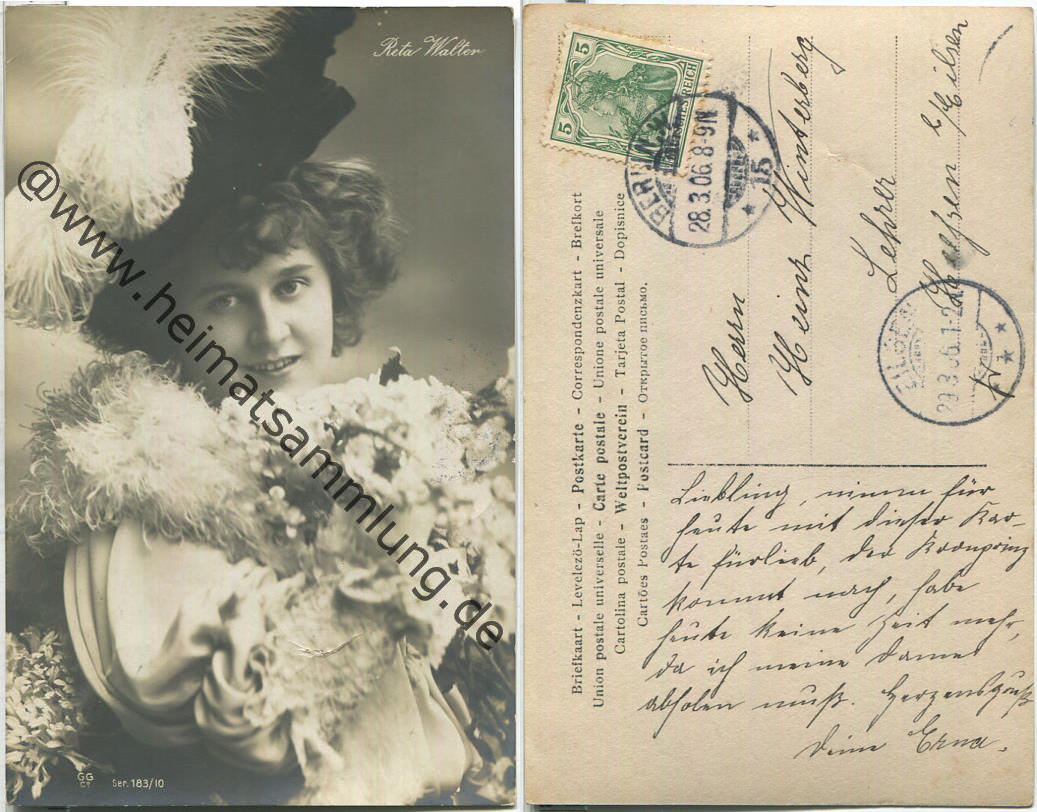 Reta Walter
@www.heimatsammlung.de
GG
Ser. 183/10
5
5
DEUTSCHES REICH
BERLIN
28.3.06. 8-9N
15
Herrn
Heinz Winterberg
Lehrer
b/Eilsen
29.3.06.
Briefkaart - Levelező-Lap - Postkarte - Correspondenzkart - Brefkort
Union postale universelle - Carte postale - Unione postale universale
Cartolina postale - Weltpostverein - Tarjeta Postal - Dopisnice
Cartões Postaes - Postcard - Открытое письмо.
Liebling, nimm für
heute mit dieser Kar-
te fürlieb, der Kronprinz
kommt nach, habe
heute keine Zeit mehr,
da ich meine Dame
abholen muß. Herzensgruß
Deine Erna.